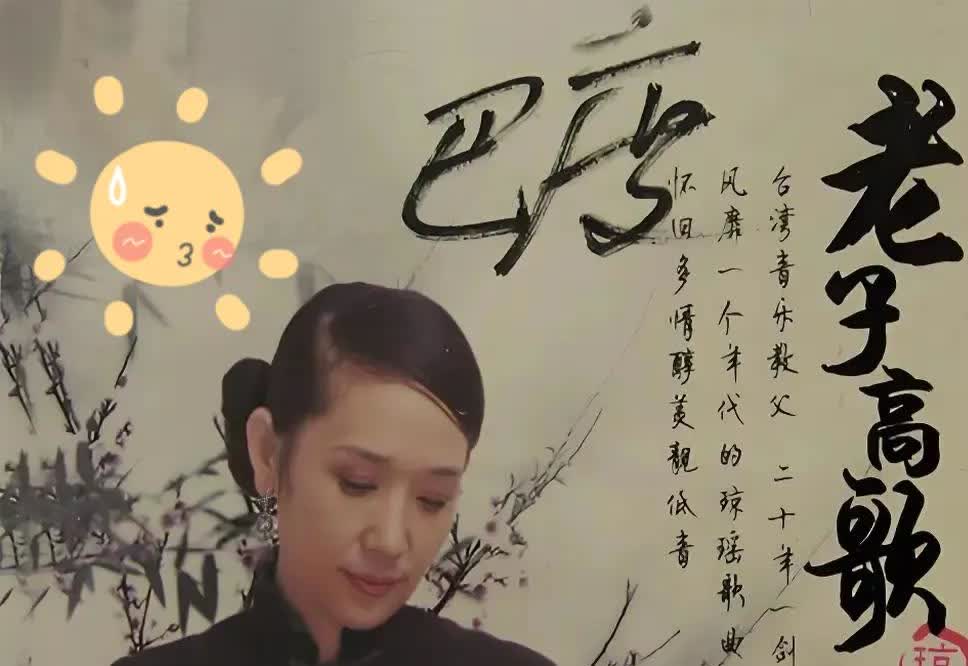 老子高歌
台湾音乐教父 二十年一剑
风靡一个年代的琼瑶歌曲
怀旧多情醇美靓低音
巴